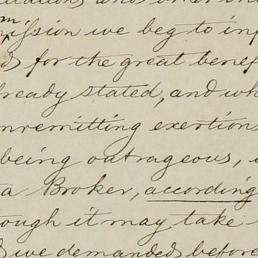 m
ission we beg to in
for the great benef
lready stated, and wh
nremitting exertions
being outrageous,
a Broker, according
ough it may take
we demanded before